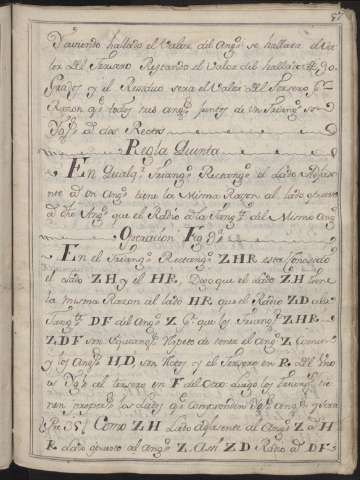 Haviendo hallado el Valor del Angº se hallara el Va
lor del Tersero Restando el Valor del hallado de 90
Grados y el Residuo sera el Valor del Tersero Pr
Razon qe todos tres angs juntos de un Triangº
Ygs a dos Rectos
Regla Quinta
En Qualqr Triangº Rectangº el lado Adjase
nte a un Angº tiene la Misma Razon al lado opuesto
a dho Angº que el Radio a la Tangte del Mismo Angº
Operacion Figª
En el Triangº Rectangº Z.H.R. esta Conosido
el lado Z.H y el HR. Digo que el lado Z.H tiene
la misma Razon al lado HR. que el Radio Z.D a la
Tangte DF del Angº Z. Pr que los Triangs Z.H.R.
Z.D.F son Equiangs Respeto de tener el Angº Z. Comun
y los Angs H,D, son Rectos y el Tersero en R. del Uno
es Ygl al tersero en F del Otro luego los Triangs tie
nen proporls los Lados qe Comprenden Ygs Angs y sera
Como Z.H Lado Adjasente al Angº Z a H
R. lado opuesto al Angº Z. Assi Z.D Radio a DF